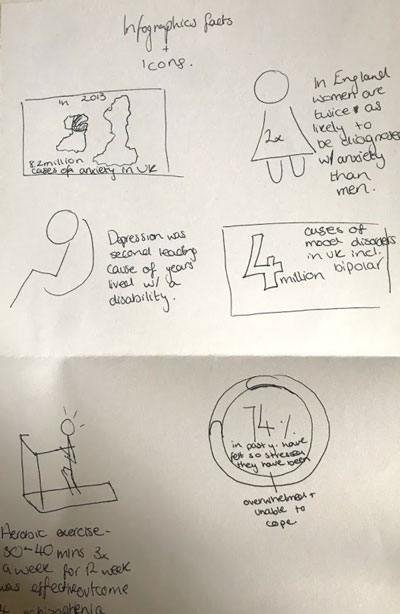 Infographics facts
+
Icons.
in 2013
8.2 million
cases of anxiety in UK
2x
In England
women are
twice as
likely to
be diagnosed
w/ anxiety
than
men.
Depression was
second leading
cause of years
lived w/ a
disability.
4
million
cases of
mood disorders
in UK incl.
bipolar
74%
in past y. have
felt so stressed
they have been
overwhelmed +
unable to
cope
Aerobic exercise -
30-40 mins 3x
a week for 12 week
was effective outcome